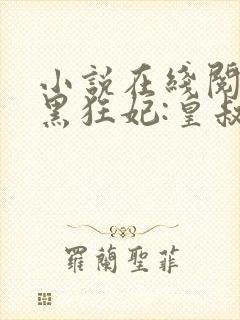 小説在綫閱
黑狂妃:皇叔
羅蘭聖菲